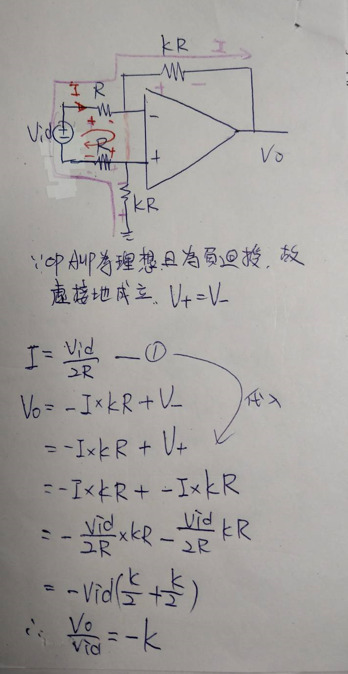 kR
I
I
R
+
-
+
-
Vid
+
-
R
-
+
+
Vo
kR
-
+
∵OP AMP為理想且為負迴授,故
虛接地成立. V+=V-
I = Vid/2R — ①
Vo = -I×kR + V-
代入
= -I×kR + V+
= -I×kR + -I×kR
= - Vid/2R ×kR - Vid/2R kR
= -Vid(k/2 + k/2)
∴ Vo/Vid = -k